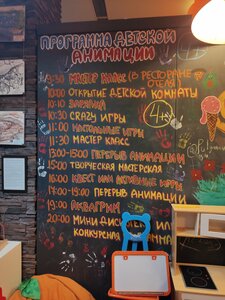 ПРОГРАММА ДЕТСКОЙ
АНИМАЦИИ
9:30 МАСТЕР КЛАСС (В РЕСТОРАНЕ
ОТЕЛЯ)
10:00 ОТКРЫТИЕ ДЕТСКОЙ КОМНАТЫ
10:10 ЗАРЯДКА
4+
10:30 CRAZY ИГРЫ
11:00 НАСТОЛЬНЫЕ ИГРЫ
11:30 МАСТЕР КЛАСС
13:00-15:00 ПЕРЕРЫВ АНИМАЦИИ
15:00 ТВОРЧЕСКАЯ МАСТЕРСКАЯ
16:00 КВЕСТ ИЛИ АКТИВНЫЕ ИГРЫ
17:00-19:00 ПЕРЕРЫВ АНИМАЦИИ
19:00 АКВАГРИМ
20:00 МИНИ ДИСК ИЛИ
КОНКУРСНАЯ АММА